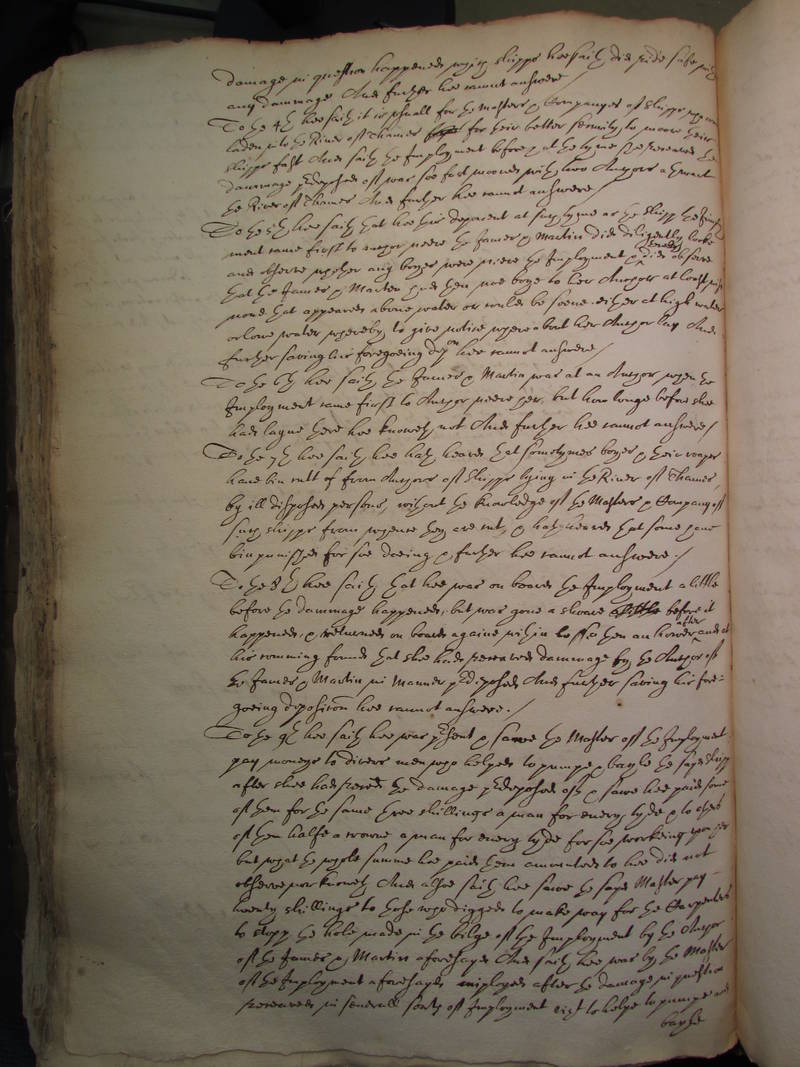 damage in question happened which shipps hee saith did ride safe without
any dammage And further hee cannot answere /
To the 4th hee saith it is usuall for the Masters & Companyes of shipps
laden in the River of Thames for their better security to moore their
shipps fast And saith the Imployment before & at the tyme she received the
dammage predeposed of was soe fast moored with two Anchors athwart
the River of Thames And further hee cannot answere /
To the 5th hee saith that hee this deponent at such tyme as the shipp the Imploy
ment came first to anchor neere the James & Martin did diligently looke
and observe whether any boyes were neere the Imployment & did observe
that the James & Martin had then noe boye to her Anchor at least wise
none that appeared above water or could be seene either at high water
or lowe water whereby to give notice whereabout her Anchor lay And
further saving his foregoeing depon hee cannot answere /
To the 6th hee saith the James & Martin was at an Anchor when the
Imployment came first to Anchor neere her, but how longe before shee
had layne there hee knoweth not And further hee cannot answere /
To the 7th hee saith hee hath heard that somtymes boyes & their ropes
have bin cutt of from Anchors of shipps lying in the River of Thames,
by ill disposed persons, without the knowledge of the Masters & Company of
such shipps from whence they are cutt, & hath heard that some have
bin punished for soe doeing & further hee cannot answere ./
To the 8th hee saith that hee was on board the Imployment a little
before the dammage happened, but was gone a shoare before it
happened, & retturned on board againe within lesse then an hower after and at
his comming found that shee had received dammage by the Anchor of
the James & Martin in Manner predeposed And further saving his fore=
goeing deposition hee cannot answere ./
To the 9th hee saith hee was present & sawe the Master of the Imployment
pay moneys to divers men who helped to pumpe & bayle the sayd shipp
after shee had received the damage predeposed of, & sawe hee paid some
of them for the same three shillings a man for every tyde & to others
of them halfe a crowne a man for every tyde for soe working upon her
but what the whole summe hee paid them amounted to hee did not
observe nor knoweth And alsoe saith hee sawe the sayd Master pay
twenty shillings to those who digged to make way for the Carpenters
to stopp the hole made in the bilge of the Imployment by the Anchor
of the James & Martin aforesayd And saith hee was by the Master
of the Imployment aforesayd imployed after the damage in question
received in severall sorts of Imployment vizt to helpe to pumpe and
bayle